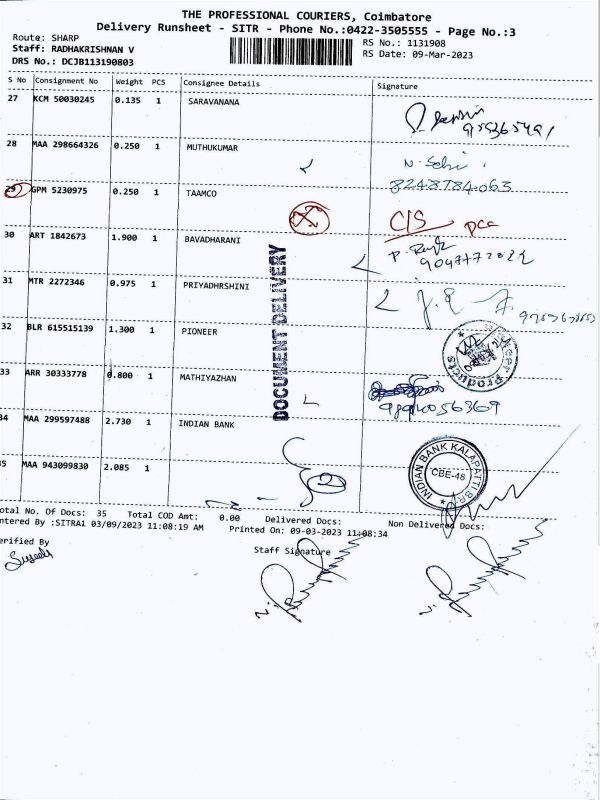 THE PROFESSIONAL COURIERS, Coimbatore
Delivery Runsheet - SITR - Phone No.:0422-3505555 - Page No.:3
Route: SHARP
RS No.: 1131908
Staff: RADHAKRISHNAN V
RS Date: 09-Mar-2023
DRS No.: DCJB113190803
S No Consignment No Weight PCS Consignee Details Signature
27 KCM 50030245 0.135 1 SARAVANANA
28 MAA 298664326 0.250 1 MUTHUKUMAR
8248784063
29 GPM 5230975 0.250 1 TAAMCO
C/S
30 ART 1842673 1.900 1 BAVADHARANI
31 MTR 2272346 0.975 1 PRIYADHRSHINI
32 BLR 615515139 1.300 1 PIONEER
33 ARR 30333778 0.800 1 MATHIYAZHAN
34 MAA 299597488 2.730 1 INDIAN BANK
35 MAA 943099830 2.085 1
DOCUMENT DELIVERY
INDIAN BANK KALAPATTI BR
CBE-48
otal No. Of Docs: 35 Total COD Amt: 0.00 Delivered Docs: Non Delivered Docs:
ntered By :SITRA1 03/09/2023 11:08:19 AM Printed On: 09-03-2023 11:08:34
erified By
Staff Signature